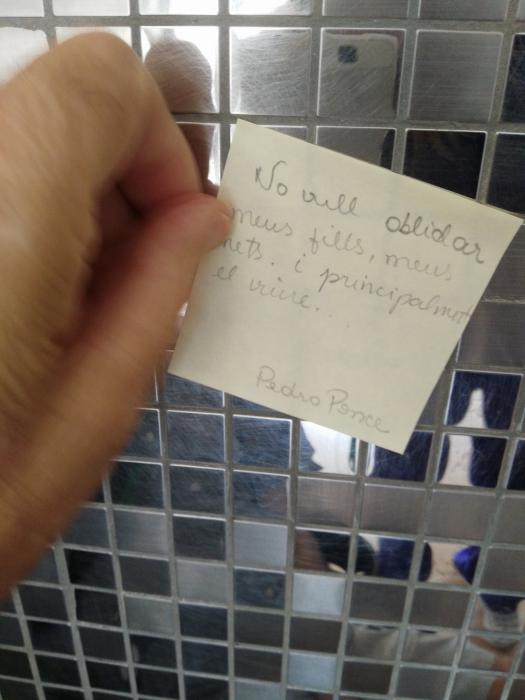 No vull oblidar
meus fills, meus
nets. i principalment
el viure...
Pedro Ponce